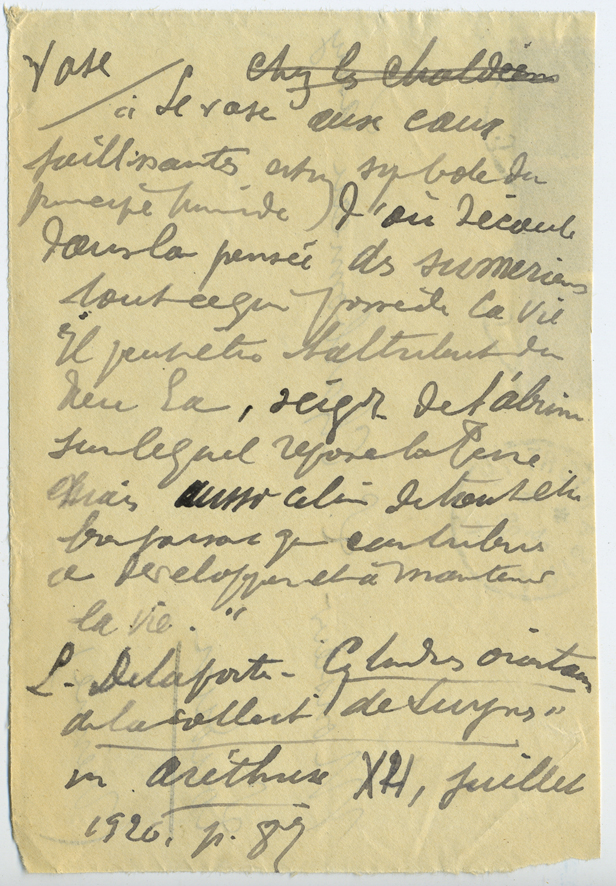 Vase chez les Chaldéens
" Le vase aux eaux
jaillissantes est symbole du
principe humide ) d'où découle
dans la pensée des sumeriens
tout ce qui possède la vie
Il peut être l'attribut du
dieu Ea, seigr de l'abîme
sur lequel repose la terre
mais aussi celui de tout être
qui contribue
a developper et à maintenir
la vie. "
L. Delaporte - Cylindres orientaux
de la collect de Luynes "
in Aréthuse XII, juillet
1926. p. 87